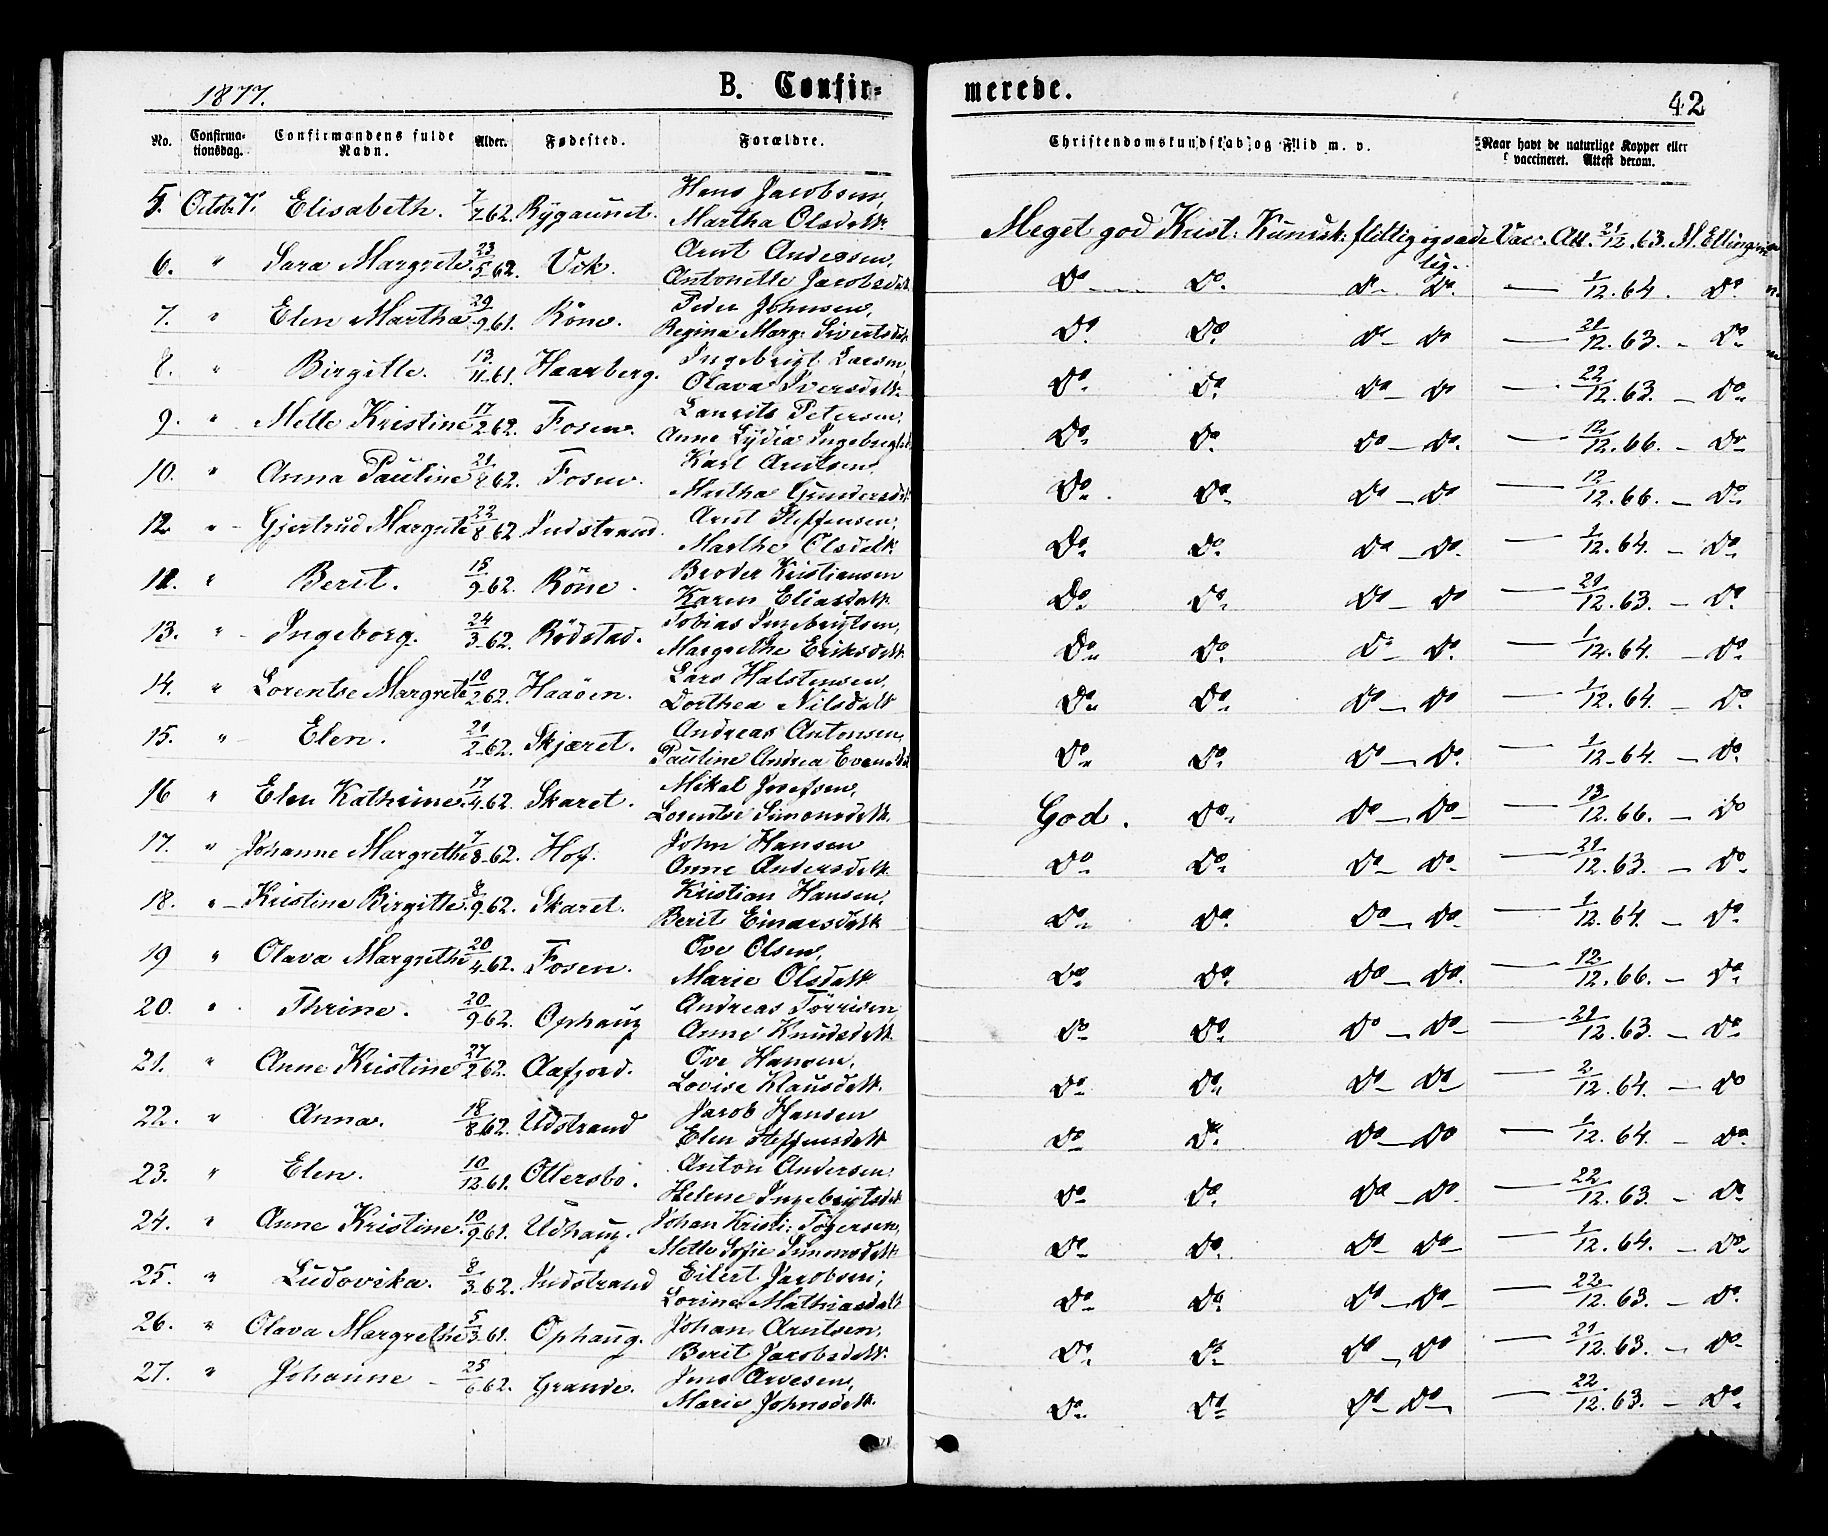 1877.
B. Confir-
merede.
42
No. Confirma- Confirmandens fulde Alder. Fødested. Forældre. Christendomskundskab og Flid m. v. Naar havt de naturlige Kopper eller
tionsdag. Navn. vaccineret. Attest derom.
5. Octob. 7. Elisabeth. 7/7-62. Rygaunet. Hans Jacobsen, Martha Olsdatt. Meget god Krist: Kundsk: flittig og sædelig. Vac. Att. 21/12.63. M. Ellingsen
6. " Sara Margrete. 23/5 62. Vik. Arnt Andersen, Antonette Jacobsdatt. Do Do. Do Do. — 1/12.64. Do.
7. " Elen Martha 29/9 61. Röne. Peder Johnsen, Regina Marg: Sivertsdatt. Do. Do. Do Do — 21/12.63. Do.
8. " Birgitte. 13/11-61. Haarberg. Ingebrigt Larsen, Olava Iversdatt. Do. Do. Do Do — 22/12.63. Do.
9. " Mette Kristine 17/2 62. Fosen. Laurits Petersen, Anne Lydia Ingebrigtsd. Do. Do. Do Do. — 12/12.66. Do
10. " Anna Pauline 21/8 62. Fosen. Karl Arntsen, Martha Gundersdt. Do. Do. Do Do — 12/12.66. Do.
12 " Gjertrud Margrete 22/8 62. Indstrand. Arnt Steffensen, Marthe Olsdatt. Do. Do. Do Do. — 1/12.64. Do.
11. " Berit. 15/9-62. Röne. Broder Kristiansen Karen Eliasdatt. Do. Do. Do Do — 21/12.63. Do.
13. " Ingeborg. 24/3-62. Rödstad. Tobias Ingebrigtsen, Margrethe Eriksdatt. Do. Do. Do Do. — 1/12.64. Do.
14. " Lorentse Margrete 10/2 62. Haaöen. Lars Halstensen, Dorthea Nilsdatt Do. Do. Do Do — 1/12.64. Do.
15. " Elen. 21/2-62. Skjæret. Andreas Antonsen, Pauline Andrea Evensd. Do. Do. Do Do. — 1/12-64. Do.
16 " Elen Kathrine. 17/4-62. Skaret. Mikal Josefsen, Lorentse Simonsdatt. God. Do. Do Do — 13/12.66. Do
17. " Johanne Margrethe 7/8-62. Hof. John Hansen Anne Andersdatt. Do Do. Do Do. — 21/12.63. Do.
18. " Kristine Birgitte. 8/9-62. Skaret. Kristian Hansen, Berit Einarsdatt Do. Do. Do Do. — 1/12.64. Do.
19 " Olava Margrethe 20/4-62. Fosen. Ove Olsen, Marie Olsdatt Do Do. Do Do. — 12/12.66. Do.
20. " Thrine. 20/9-62. Ophaug Andreas Törrisen Anne Knudsdatt. Do Do. Do Do — 21/12.63. Do.
21. " Anne Kristine 27/2 62. Aafjord. Ove Hansen, Lovise Klausdatt. Do Do. Do Do — 2/12.64. Do
22. " Anna. 18/8 62. Udstrand Jacob Hansen Elen Steffensdatt Do Do. Do Do — 1/12.64. Do
23. " Elen. 10/12.61. Ottersbo. Anton Andersen. Helene Ingebrigtsdat Do Do. Do Do. — 22/12.63. Do
24. " Anne Kristine. 10/9-61. Udhaug. Johan Kristi: Tögersen, Mette Sofie Simonsdatt. Do Do. Do Do — 1/12.64. Do
25. " Ludovika. 8/3-62. Indstrand Eilert Jacobsen; Lorine Mathiasdatt Do Do. Do Do — 22/12.63. Do.
26. " Olava Margrethe 5/3 61. Ophaug. Johan Arntsen, Berit Jacobsdatt. Do. Do Do Do — 21/12.63. Do
27. " Johanne 25/6 62. Grande. Jens Arvesen, Marie Johnsdatt. Do. Do Do Do — 22/12.63. Do.